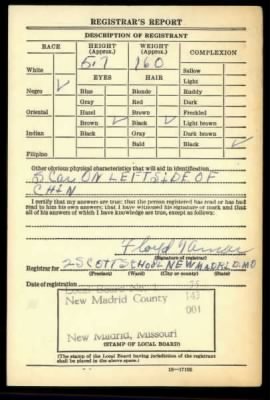 REGISTRAR'S REPORT
DESCRIPTION OF REGISTRANT
RACE HEIGHT (Approx.) WEIGHT (Approx.) COMPLEXION
5.7 160
White Sallow
EYES HAIR Light
Negro ✓ Blue Blonde Ruddy
Gray Red Dark
Oriental Hazel Brown Freckled
Brown ✓ Black ✓ Light brown
Indian Black Gray Dark brown
Bald Black ✓
Filipino
Other obvious physical characteristics that will aid in identification
SCar ON LEFT SIDE OF
CHIN
I certify that my answers are true; that the person registered has read or has had
read to him his own answers; that I have witnessed his signature or mark and that
all of his answers of which I have knowledge are true, except as follows:
Floyd
(Signature of registrar)
Registrar for 2 SCOTT SCHOOL NEW MADRID MO
(Precinct) (Ward) (City or county) (State)
Date of registration
Local Board No. 1 75
New Madrid County 143
001
New Madrid, Missouri
(STAMP OF LOCAL BOARD)
(The stamp of the Local Board having jurisdiction of the registrant
shall be placed in the above space.)